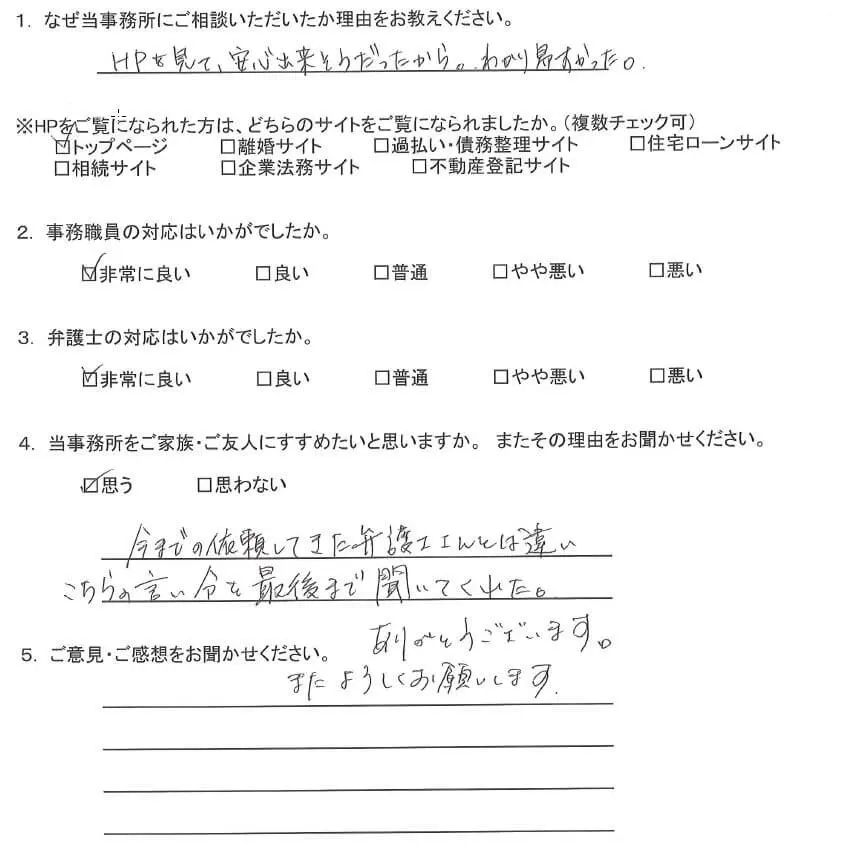 1. なぜ当事務所にご相談いただいたか理由をお教えください。
HPを見て、安心出来そうだったから。わかり易すかった。
※HPをご覧になられた方は、どちらのサイトをご覧になられましたか。（複数チェック可）
☑トップページ □離婚サイト □過払い・債務整理サイト □住宅ローンサイト
□相続サイト □企業法務サイト □不動産登記サイト
2. 事務職員の対応はいかがでしたか。
☑非常に良い □良い □普通 □やや悪い □悪い
3. 弁護士の対応はいかがでしたか。
☑非常に良い □良い □普通 □やや悪い □悪い
4. 当事務所をご家族・ご友人にすすめたいと思いますか。 またその理由をお聞かせください。
☑思う □思わない
今までの依頼してきた弁護士さんとは違い
こちらの言い分を最後まで聞いてくれた。
5. ご意見・ご感想をお聞かせください。
ありがとうございます。
またよろしくお願いします.